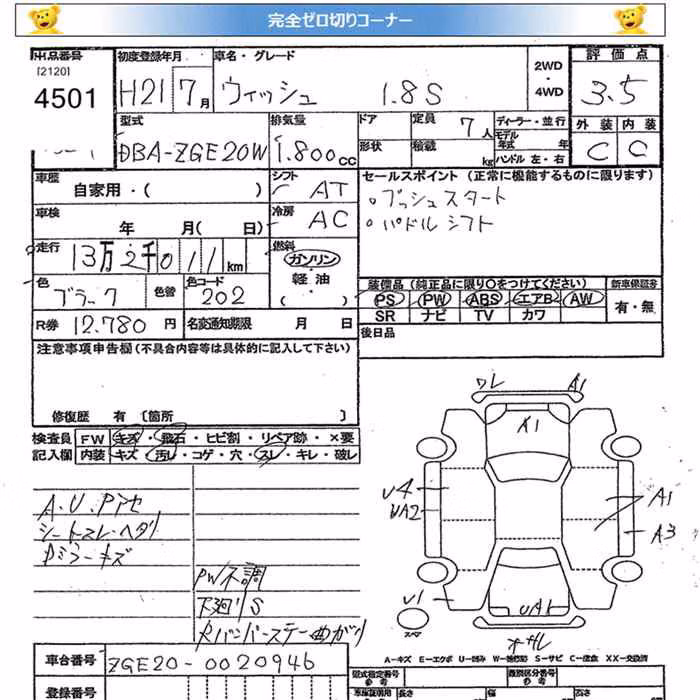 完全ゼロ切りコーナー
出品番号 初度登録年月 車名・グレード 2WD・4WD 評価点
[2120]
4501 H21 7月 ウィッシュ 1.8S 3.5
型式 排気量 ドア 定員 7人 ディーラー・並行 外装 内装
DBA-ZGE20W 1.800cc 形状 積載 kg モデル年式 年 C C
ハンドル 左・右
車歴 自家用・( ) シフト AT セールスポイント (正常に機能するものに限ります)
車検 年 月(日) 冷房 AC ○プッシュスタート
○パドルシフト
走行 13万2千011km 燃料 ガソリン
軽油
( )
色 ブラック 色替 色コード 202 装備品(純正品に限り○をつけてください) 新車保証書
PS PW ABS エアB AW 有・無
SR ナビ TV カワ
R券 12.780円 名変通知期限 月 日 後日品
注意事項申告欄(不具合内容等は具体的に記入して下さい)
修復歴 有 〔箇所 〕
検査員 FW キズ・飛石・ヒビ割・リペア跡・×要
記入欄 内装 キズ・汚レ・コゲ・穴・スレ・キレ・破レ
ワレ A1
A1
U4 A1
UA2 A3
U1 UA1
スペア
A.U.アトセ
シートスレ・ヘタリ
キズ
PW不調
下廻りS
Rバンパーステー曲がり
A-キズ E-エクボ U-凹み W-補修跡 S-サビ C-腐食 XX-交換済
車台番号 ZGE20-0020946 型式指定番号 参考 類別区分番号 参考
登録番号 長さ 幅 高さ